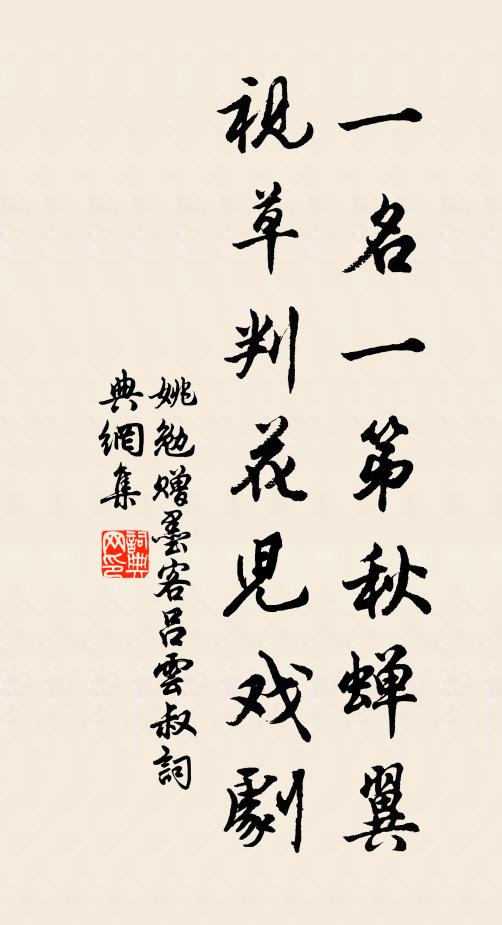 一名一第秋蝉翼
視草判花児戏劇
姚勉赠墨客吕雲叔詞
典網集
詞典
网印